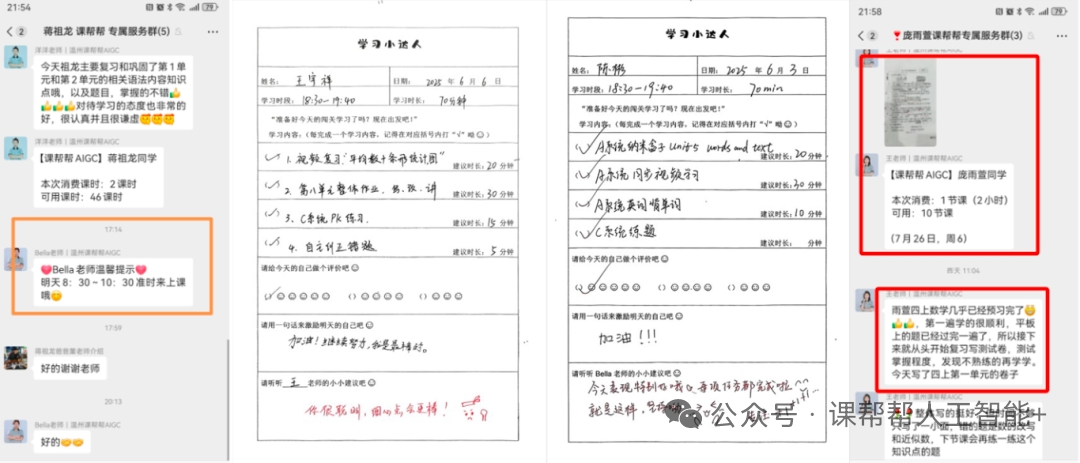 21:54
79
2
蒋祖龙 课帮帮 专属服务群(5)
洋洋老师 | 温州课帮帮AIGC
今天祖龙主要复习和巩固了第1单
元和第2单元的相关语法内容知识
点哦，以及题目，掌握的不错👍
👍👍👍对待学习的态度也非常的
好，很认真并且很谦虚🥰🥰🥰
洋洋老师 | 温州课帮帮AIGC
【课帮帮 AIGC】蒋祖龙同学
本次消费课时：2课时
可用课时：46课时
17:14
Bella老师 | 温州课帮帮AIGC
💗Bella 老师温馨提示💗
明天 8：30 ~ 10：30 准时来上课
哦😊
17:59
蒋祖龙爸爸董老师介绍
好的谢谢老师
20:13
洋洋老师 | 温州课帮帮AIGC
好的
学习小达人
姓名： 王宇祥
日期： 2025 年 6 月 6 日
学习时段： 18:30-19:40
学习时长： 70分钟
“准备好今天的闯关学习了吗？现在出发吧！”
学习内容：（每完成一个学习内容，记得在对应括号内打“√”呦☺）
(√) 1. 视频复习“平均数+条形统计图”
建议时长：20 分钟
(√) 2. 第八单元整体作业，
建议时长：30 分钟
(√) 3. C系统PK练习.
建议时长：15 分钟
(√) 4. 自主订正错题
建议时长：5 分钟
请给今天的自己做个评价吧☺
(√)☺☺☺☺☺ ( )☺☺☺☺ ( )☺☺☺
请用一句话来激励明天的自己吧☺
加油！继续努力，我是最棒的。
请听听 王 老师的小小建议吧☺
你很聪明，细心点会更棒！
学习小达人
姓名： 陈彬
日期： 2025 年 6 月 3 日
学习时段： 18:30-19:40
学习时长： 70 min
“准备好今天的闯关学习了吗？现在出发吧！”
学习内容：（每完成一个学习内容，记得在对应括号内打“√”呦☺）
(√) A系统纳米盒子 Unit 5 words and text
建议时长：20 分钟
(√) A系统同步视频学习
建议时长：30 分钟
(√) A系统英词顺单词
建议时长：10 分钟
(√) C系统练题
建议时长： 分钟
请给今天的自己做个评价吧☺
(√)☺☺☺☺☺ ( )☺☺☺☺ ( )☺☺☺
请用一句话来激励明天的自己吧☺
加油！！！
请听听 Bella 老师的小小建议吧☺
今天表现特别好哦，每项任务都完成啦
就是这样，
21:58
79
2
❣️庞雨萱课帮帮专属服务群(3)
王老师 | 温州课帮帮AIGC
【课帮帮 AIGC】庞雨萱同学
本次消费：1 节课（2 小时）
可用：10 节课
(7 月 26 日，周 6)
昨天 11:04
王老师 | 温州课帮帮AIGC
雨萱四上数学几乎已经预习完了
👍👍，第一遍学的很顺利，平板
上的题已经过完一遍了，所以接下
来就从头开始复习写测试卷，测试
掌握程度，发现不熟练的再学学。
今天写了四上第一单元的卷子
王老师 | 温州课帮帮AIGC
整体写的挺好
只写了一小面，错的题是数的改写
和近似数，下节课会再练一练这个
知识点的题
公众号 · 课帮帮人工智能+